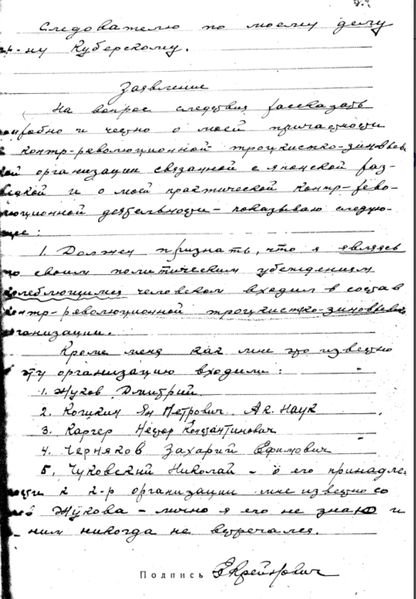 Следователю по моему делу
гр-ну Куберскому.
Заявление
На вопрос следствия рассказать
подробно и честно о моей причастности
к контр-революционной троцкистско-зиновьев
ской организации связанной с японской раз-
ведкой и о моей практической контр-рево-
люционной деятельности - показываю следую-
щее:
1. Должен признать, что я являясь
по своим политическим убеждениям
колеблющимся человеком входил в состав
контр-революционной троцкистско-зиновьевской
организации.
Кроме меня как мне это известно
в эту организацию входили:
1. Жуков Дмитрий
2. Кошкин Ян Петрович Ак. Наук
3. Каргер Нестор Константинович "
4. Черняков Захарий Ефимович "
5. Чуковский Николай - о его принадле
ности к к-р организации мне известно со
Жукова - лично я его не знаю и
ним никогда не встречался.
Подпись ЕКрейнович